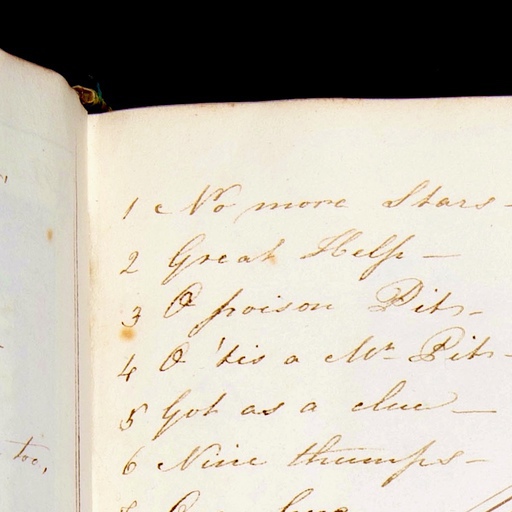 too,
1 No more Stars -
2 Great Help -
3 O poison Pit -
4 O 'tis a Mr Pit -
5 Got as a clue -
6 Nine thumps -